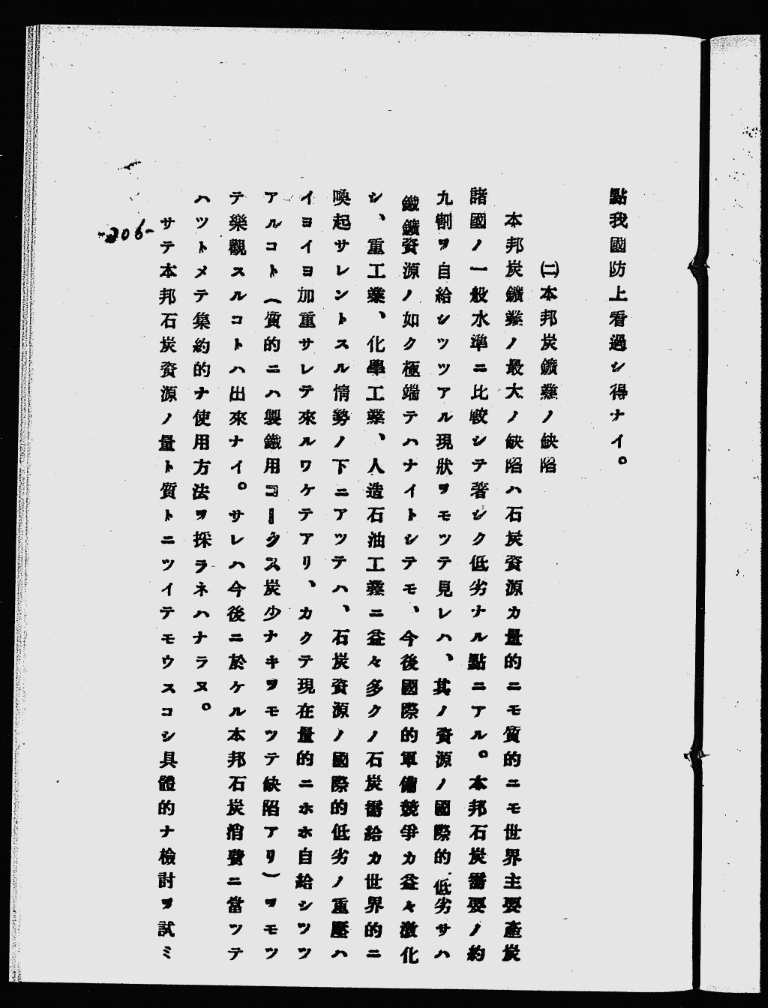 點我國防上看過シ得ナイ。
㈡本邦炭鑛業ノ缺陷
本邦炭鑛業ノ最大ノ缺陷ハ石炭資源カ量的ニモ質的ニモ世界主要產炭
諸國ノ一般水準ニ比較シテ著シク低劣ナル點ニアル。本邦石炭需要ノ約
九割ヲ自給シツツアル現狀ヲモツテ見レハ、其ノ資源ノ國際的低劣サハ
鐵鑛資源ノ如ク極端テハナイトシテモ、今後國際的軍備競爭カ益々激化
シ、重工業、化學工業、人造石油工業ニ益々多クノ石炭需給カ世界的ニ
喚起サレントスル情勢ノ下ニアツテハ、石炭資源ノ國際的低劣ノ重壓ハ
イヨイヨ加重サレテ來ルワケテアリ、カクテ現在量的ニホホ自給シツツ
アルコト（質的ニハ製鐵用コークス炭少ナキヲモツテ缺陷アリ）ヲモツ
テ樂觀スルコトハ出來ナイ。サレハ今後ニ於ケル本邦石炭消費ニ當ツテ
ハツトメテ集約的ナ使用方法ヲ採ラネハナラヌ。
サテ本邦石炭資源ノ量ト質トニツイテモウスコシ具體的ナ檢討ヲ試ミ
-206-